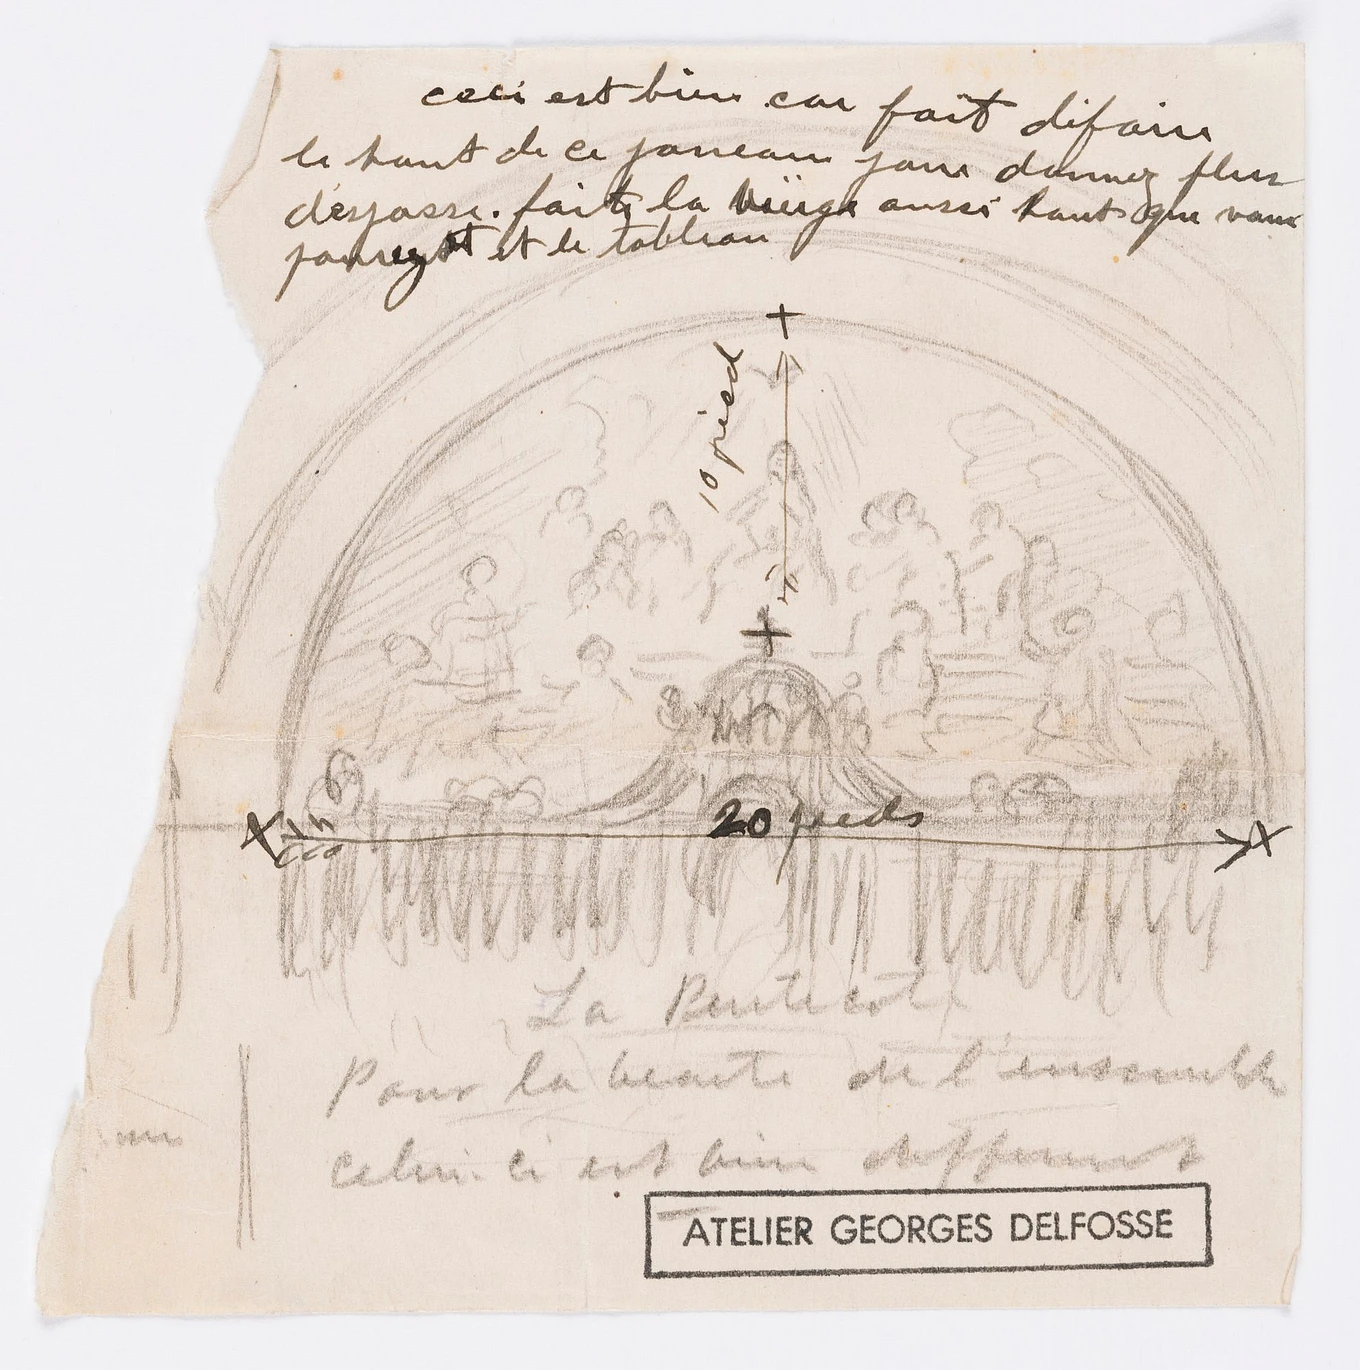 ceci est bien car fait difaire
le haut de ce panneau pour donnez plus
d'espasse. faite la vierge aussi haut que vous
pourrez et le tableau
10 pied
20 pieds
La Pentecôte
Pour la beauté de l'ensemble
celui-ci est bien different
ATELIER GEORGES DELFOSSE